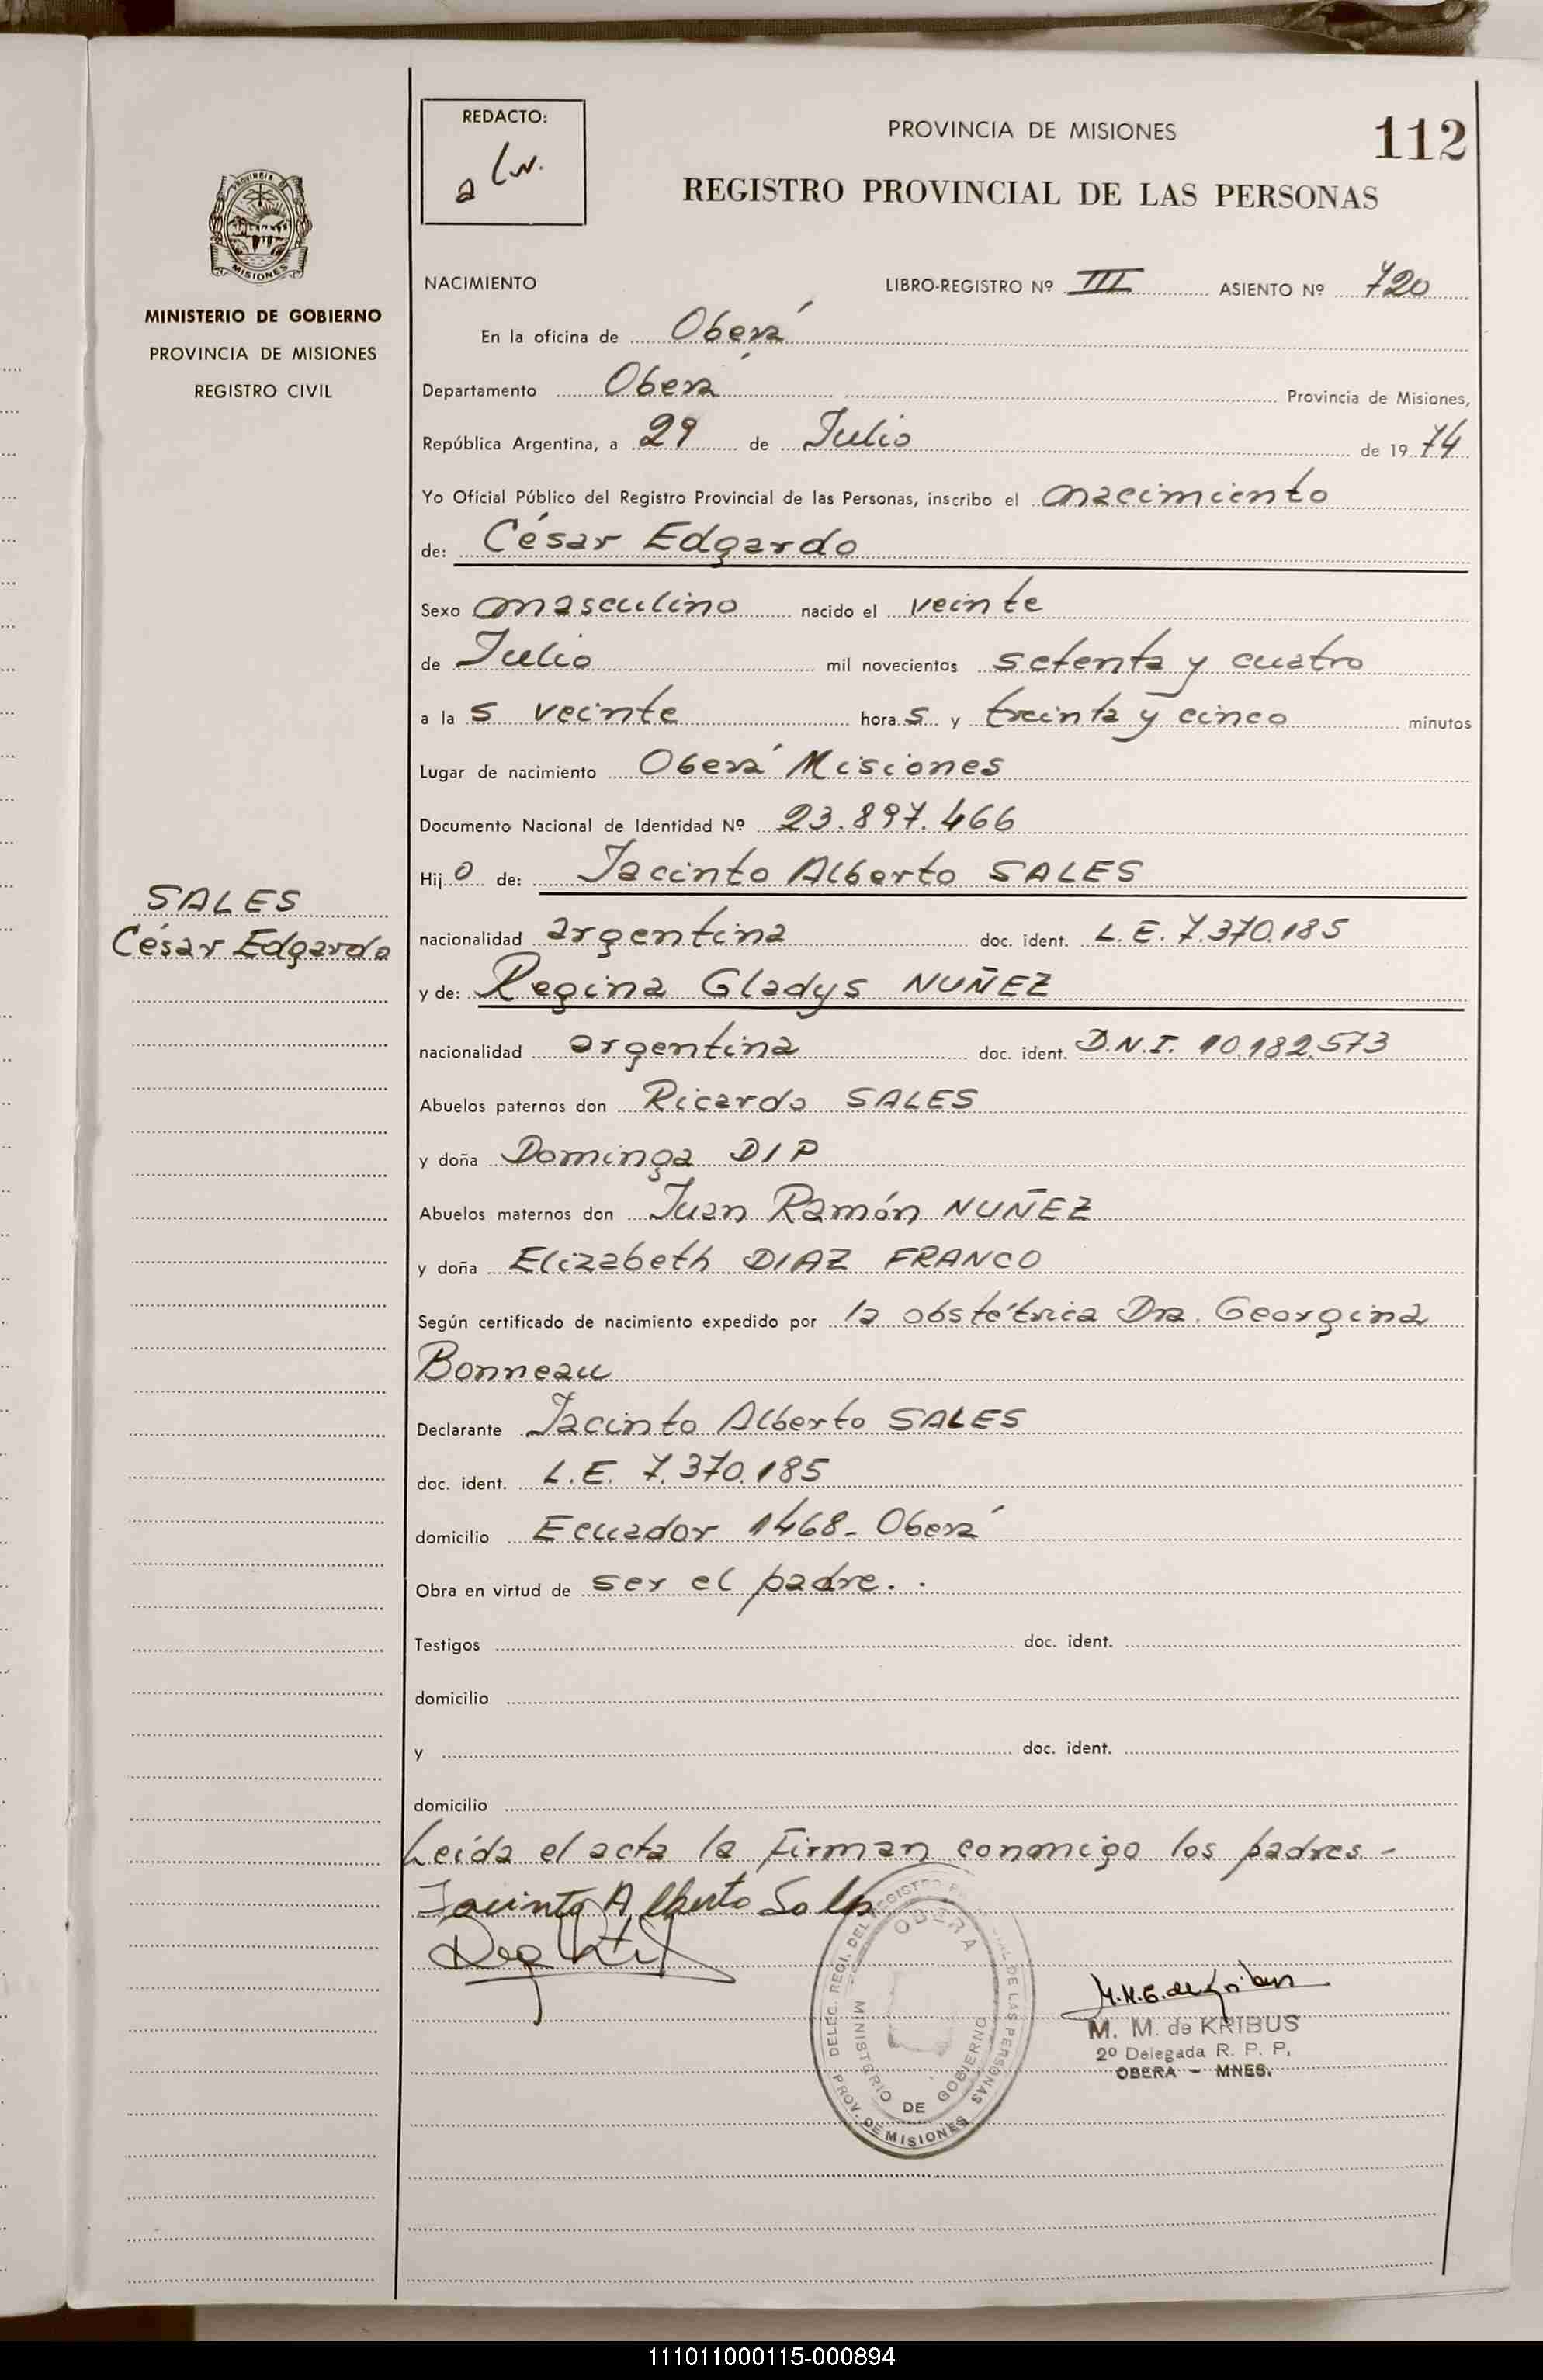 REDACTO:
PROVINCIA DE MISIONES
112
REGISTRO PROVINCIAL DE LAS PERSONAS
PROVINCIA DE
MISIONES
MINISTERIO DE GOBIERNO
PROVINCIA DE MISIONES
REGISTRO CIVIL
NACIMIENTO LIBRO-REGISTRO Nº III ASIENTO Nº 720
En la oficina de Oberá
Departamento Oberá Provincia de Misiones,
República Argentina, a 29 de Julio de 1974
Yo Oficial Público del Registro Provincial de las Personas, inscribo el nacimiento
de: César Edgardo
Sexo masculino nacido el veinte
de Julio mil novecientos setenta y cuatro
a las veinte horas y treinta y cinco minutos
Lugar de nacimiento Oberá Misiones
Documento Nacional de Identidad Nº 23.897.466
Hijo de: Jacinto Alberto SALES
SALES
César Edgardo
nacionalidad argentina doc. ident. L.E. 7.370.185
y de: Regina Gladys NUÑEZ
nacionalidad argentina doc. ident. D.N.I. 10.182.573
Abuelos paternos don Ricardo SALES
y doña Dominga DIP
Abuelos maternos don Juan Ramón NUÑEZ
y doña Elizabeth DIAZ FRANCO
Según certificado de nacimiento expedido por la obstétrica Dra. Georgina
Bonneau
Declarante Jacinto Alberto SALES
doc. ident. L.E. 7.370.185
domicilio Ecuador 1468- Oberá
Obra en virtud de ser el padre..
Testigos doc. ident.
domicilio
y doc. ident.
domicilio
Leída el acta la Firman conmigo los padres-
Jacinto Alberto Sales
DELEC. REGI. DEL REGISTRO PROVINCIAL DE LAS PERSONAS
OBERA
MINISTERIO DE GOBIERNO
PROV. DE MISIONES
M. M. de KRIBUS
2º Delegada R. P. P.
OBERA - MNES.
111011000115-000894